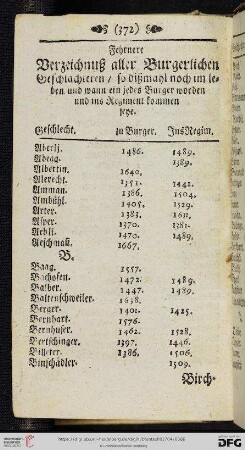 (372)
Fehrnere
Verzeichnuß aller Burgerlichen
Geschlächteren / so dißmahl noch im le-
ben und wann ein jedes Burger worden
und ins Regiment kommen
seye.
Geschlecht. zu Burger. Ins Regim.
Aberlj. 1486. 1489.
Abegg. 1389.
Albertin. 1640.
Alerecht. 1351. 1442.
Amman. 1386. 1504.
Ambühl. 1505. 1529.
Arter. 1383. 1611.
Asper. 1370. 1381.
Aebli. 1470. 1489.
Aeschman. 1667.
B.
Baag. 1557.
Bachofen. 1472. 1489.
Balber. 1447. 1489.
Baltenschweiler. 1638.
Berger. 1401. 1425.
Bernhart. 1576.
Bernhuser. 1462. 1528.
Bertschinger. 1397. 1446.
Billeter. 1386. 1506.
Binschädler. 1509.
Birch-
DFG